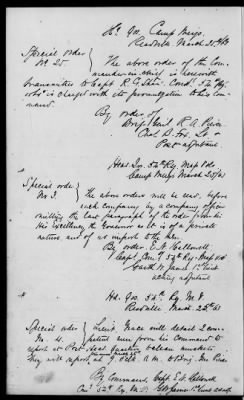 Hd. Qrs. Camp Meigs
Readville March 25, /63
Special order
No. 25
The above order of the Com-
mander-in-chief is herewith
transmitted to Capt. R. G. Shaw Comd. 54 Reg
who is charged with its promulgation to his Com-
mand.
By order of
Brig. Genl. R. A. Peirce
Post adjutant
Head Qrs. 54th Reg. Mass Vols
Camp Meigs March 25/63
Special order
No. 3.
The above orders will be read before
each company by a company officer
omitting the last paragraph of the order from
His Excellency the Governor as it is of a private
nature and of no import to the men.
By order, E. N. Hallowell
Capt. Com'g 54th Reg. Mass Vol
Garth W. James 1st Lieut
acting adjutant
Hd. Qrs. 54th Reg. M. V.
Readville March 25th 63
Special order
No. 4.
Lieut. Grace will detail 2 com-
petent men from his command to
report at Post Head Quarters
They will report at
By Command, Capt. E. N. Hallowell
54th Reg. M. V.